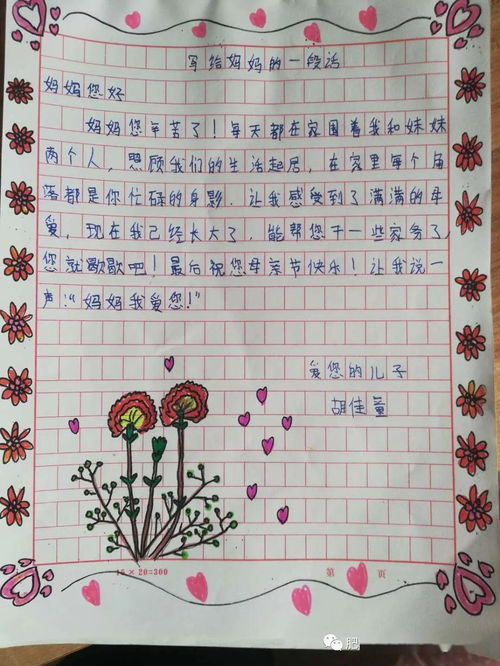 写给妈妈的一段话
妈妈您好
妈妈您辛苦了！每天都在家围着我和妹妹
两个人，照顾我们的生活起居，在家里每个角
落都是你忙碌的身影．让我感受到了满满的母
爱，现在我已经长大了，能帮您干一些家务了，
您就歇歇吧！最后祝您母亲节快乐！让我说一
声：“妈妈我爱您！”
爱您的儿子
胡佳童
15×20=300
第 页
肥